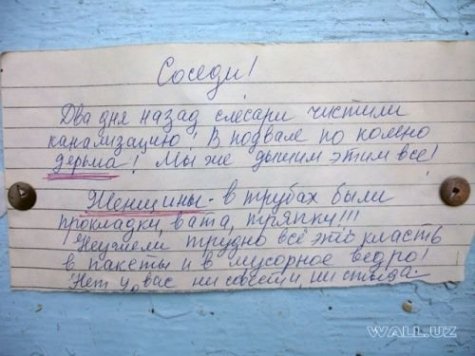 Соседи!
Два дня назад слесари чистили
канализацию! В подвале по колено
дерьма! Мы же дышим этим все!
Женщины - в трубах были
прокладки, вата, тряпки!!!
Неужели трудно всё это класть
в пакеты и в мусорное ведро!
Нет у вас ни совести, ни стыда.
WALL.UZ